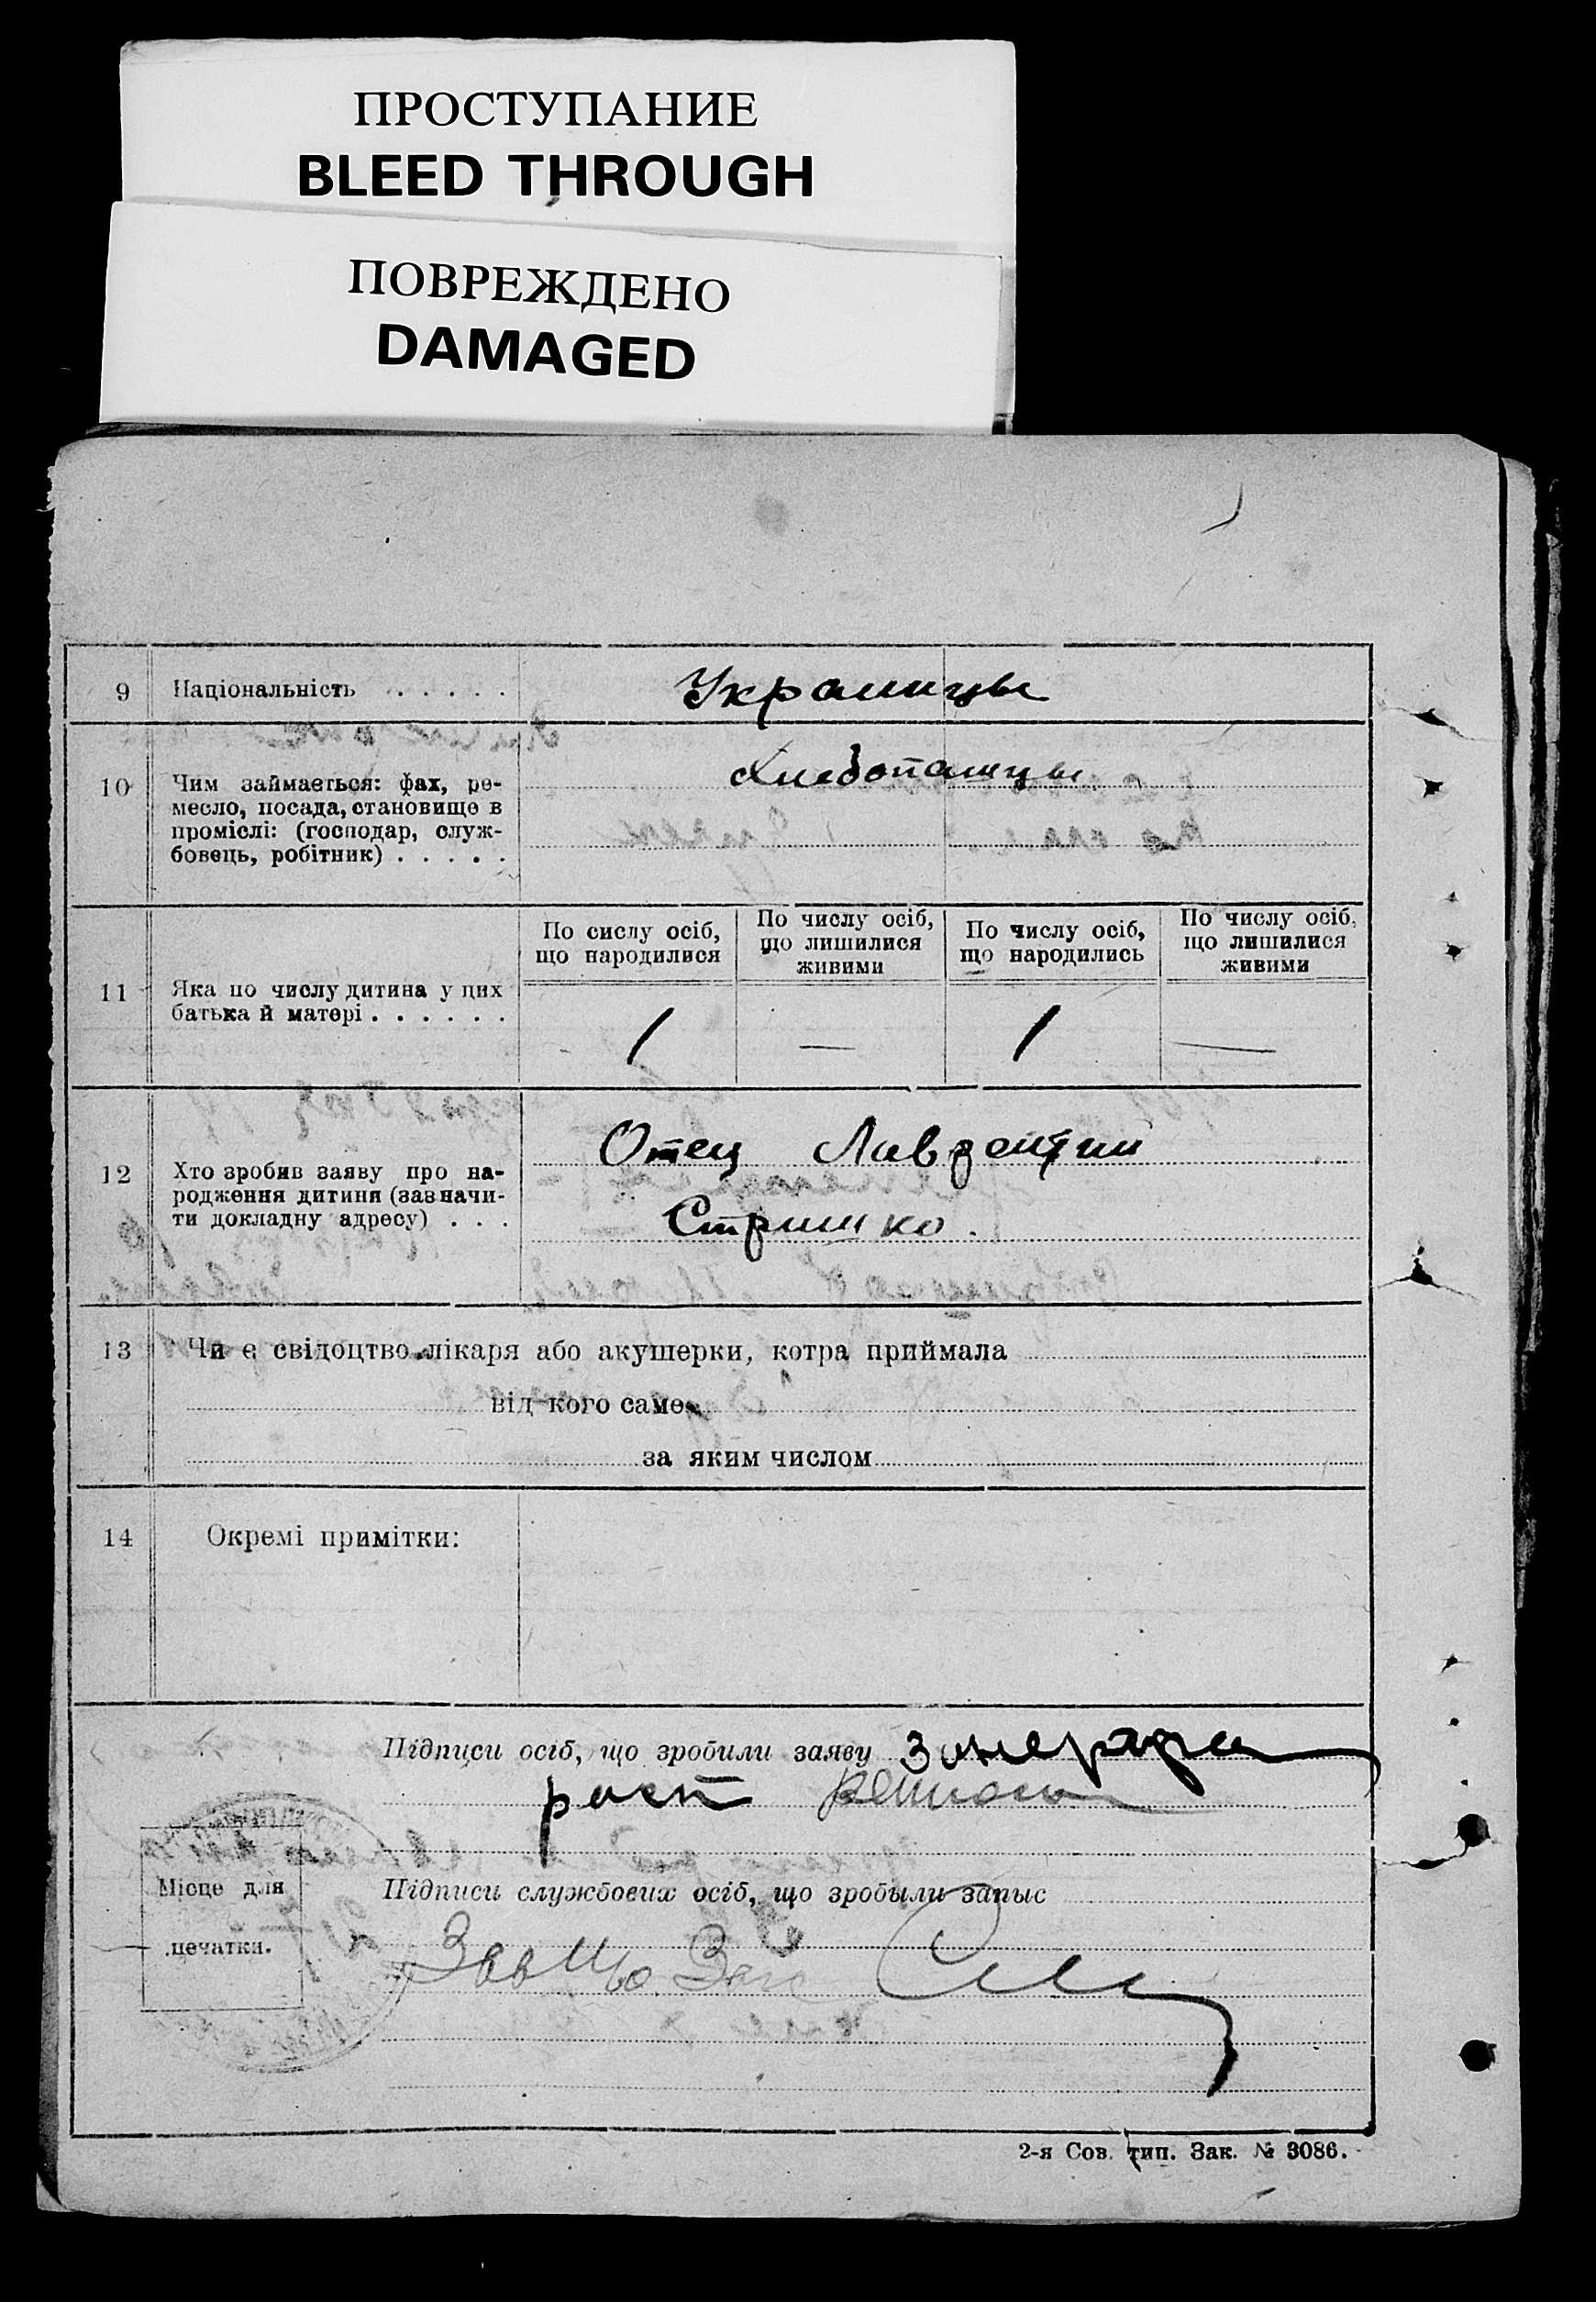 ПРОСТУПАНИЕ
BLEED THROUGH
ПОВРЕЖДЕНО
DAMAGED
9 Національність . . . . . Украинцы
10 Чим займається: фах, ре-
месло, посада, становище в
проміслі: (господар, служ-
бовець, робітник) . . . . .
Хлебопашцы
11 Яка по числу дитина у цих
батька й матері . . . . . .
По сислу осіб,
що народилися
По числу осіб,
що лишилися
живими
По числу осіб,
що народились
По числу осіб,
що лишилися
живими
1 — 1 —
12 Хто зробив заяву про на-
родження дитини (зазначи-
ти докладну адресу) . . .
Отец Лаврентий
Стришко.
13 Чи є свідоцтво лікаря або акушерки, котра приймала
від кого саме
за яким числом
14 Окремі примітки:
Підписи осіб, що зробили заяву
Місце для
печатки.
Підписи службових осіб, що зробыли запыс
2-я Сов. тип. Зак. № 3086.